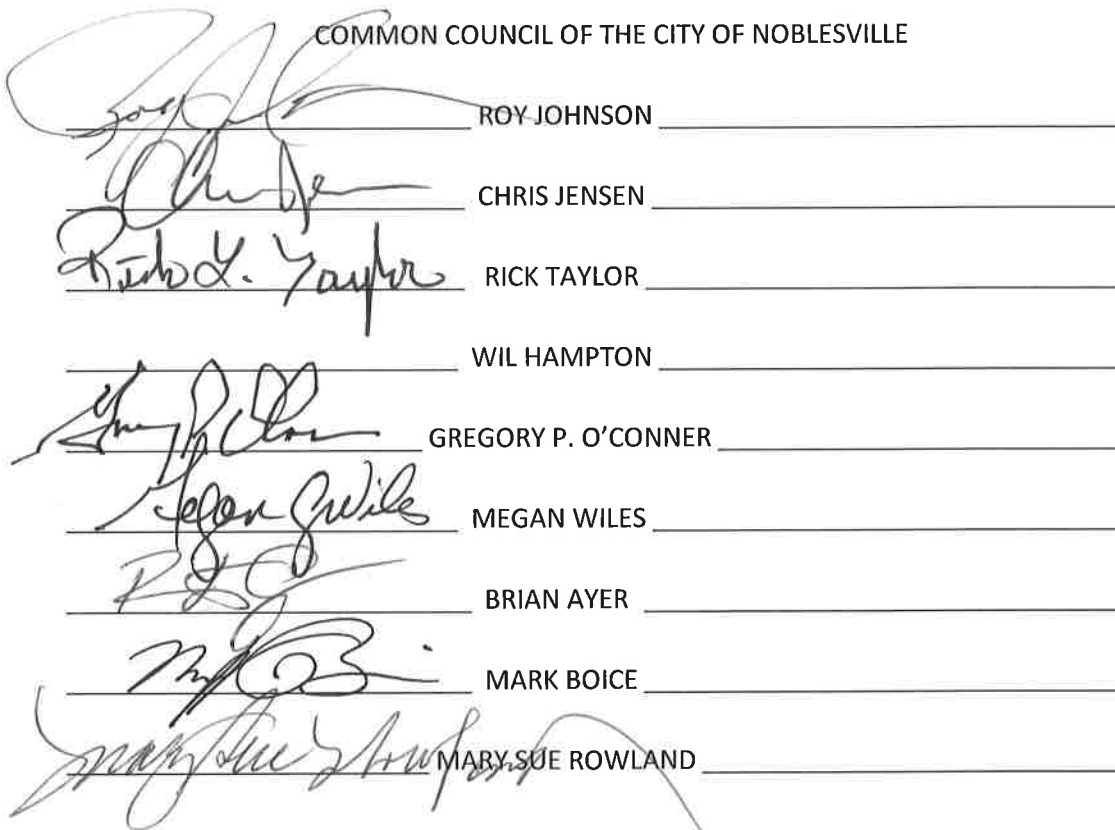 COMMON COUNCIL OF THE CITY OF NOBLESVILLE
ROY JOHNSON
CHRIS JENSEN
Rick L. Taylor RICK TAYLOR
WIL HAMPTON
GREGORY P. O'CONNER
Megan G Wiles MEGAN WILES
BRIAN AYER
MARK BOICE
Mary Sue Rowland MARY SUE ROWLAND